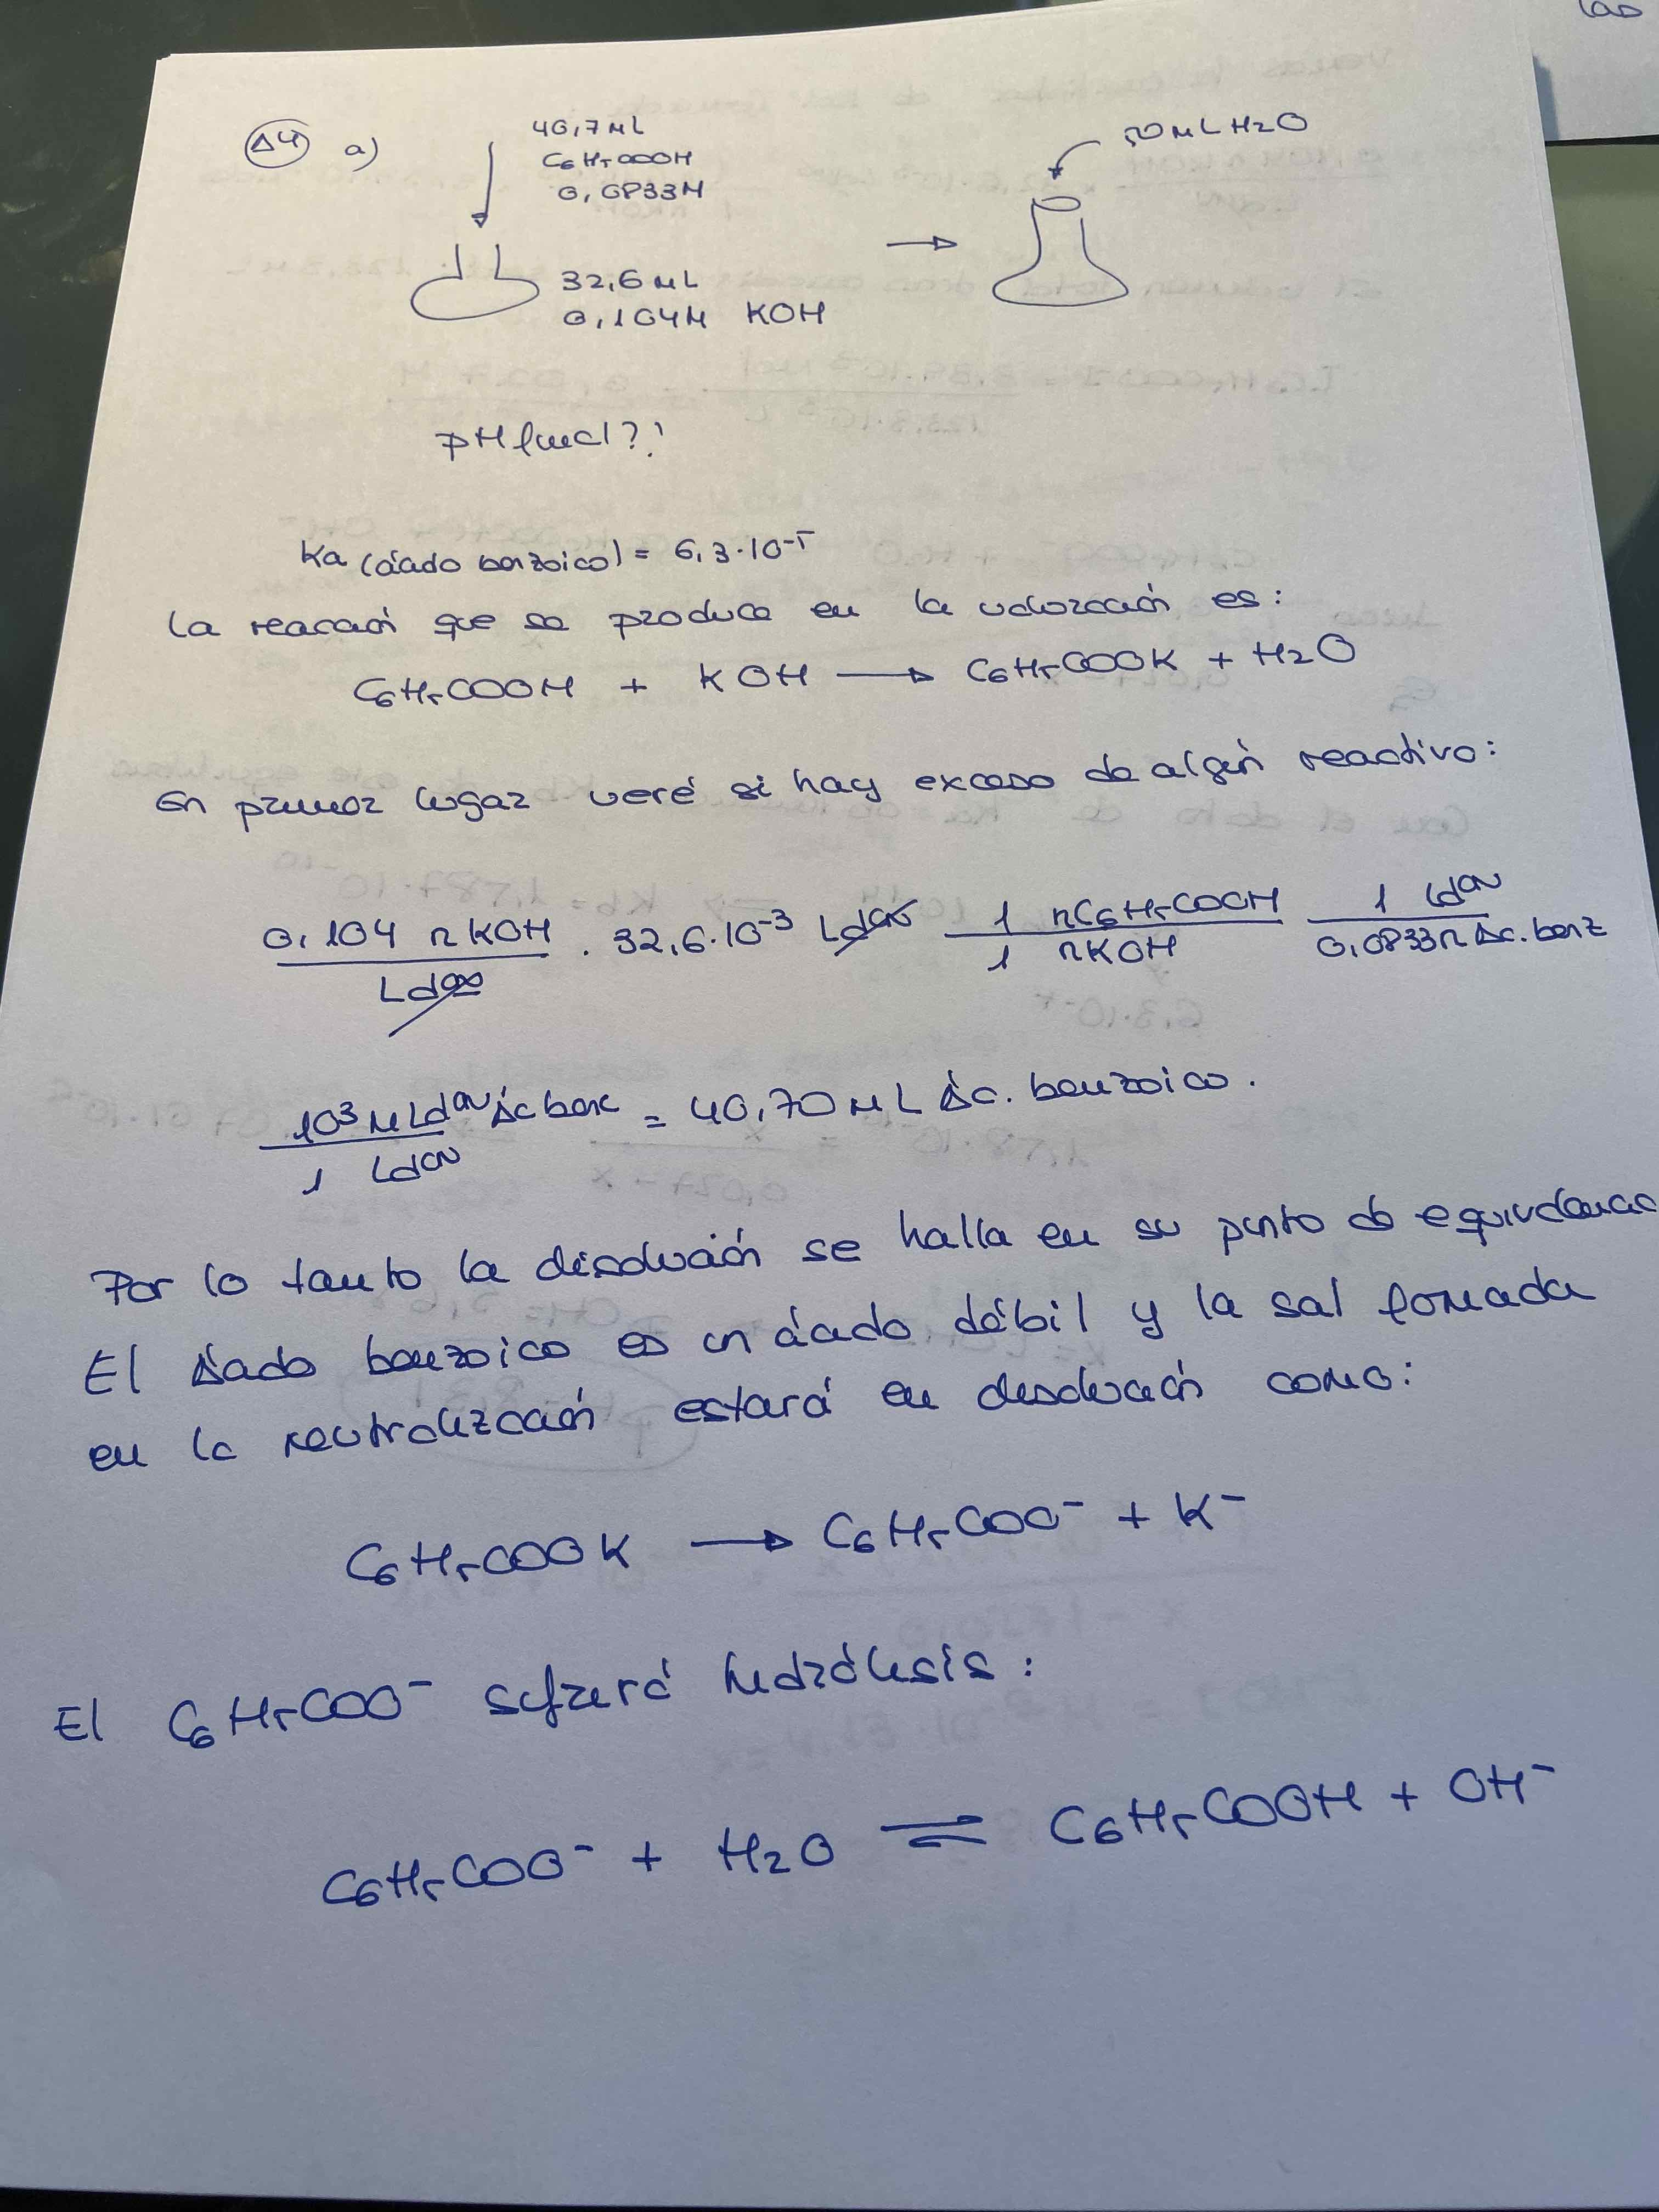 las
A4 a) 40,7 mL
C6H5COOH
0,0833M
50 mL H2O
32,6 mL
0,104M KOH
pH final??
Ka (ácido benzoico) = 6,3·10-5
La reacción que se produce en la valoración es:
C6H5COOH + KOH → C6H5COOK + H2O
En primer lugar veré si hay exceso de algún reactivo:
0,104 n KOH / L dón · 32,6·10-3 L dón 1 n C6H5COOH / 1 n KOH 1 L dón / 0,0833 n Ac. benz
10³ mL dón Ac benc / 1 L dón = 40,70 mL Ác. benzoico.
Por lo tanto la disolución se halla en su punto de equivalencia
El Ácido benzoico es un ácido débil y la sal formada
en la neutralización estará en disolución como:
C6H5COOK → C6H5COO- + K-
El C6H5COO- sufrirá hidrólisis:
C6H5COO- + H2O ⇌ C6H5COOH + OH-